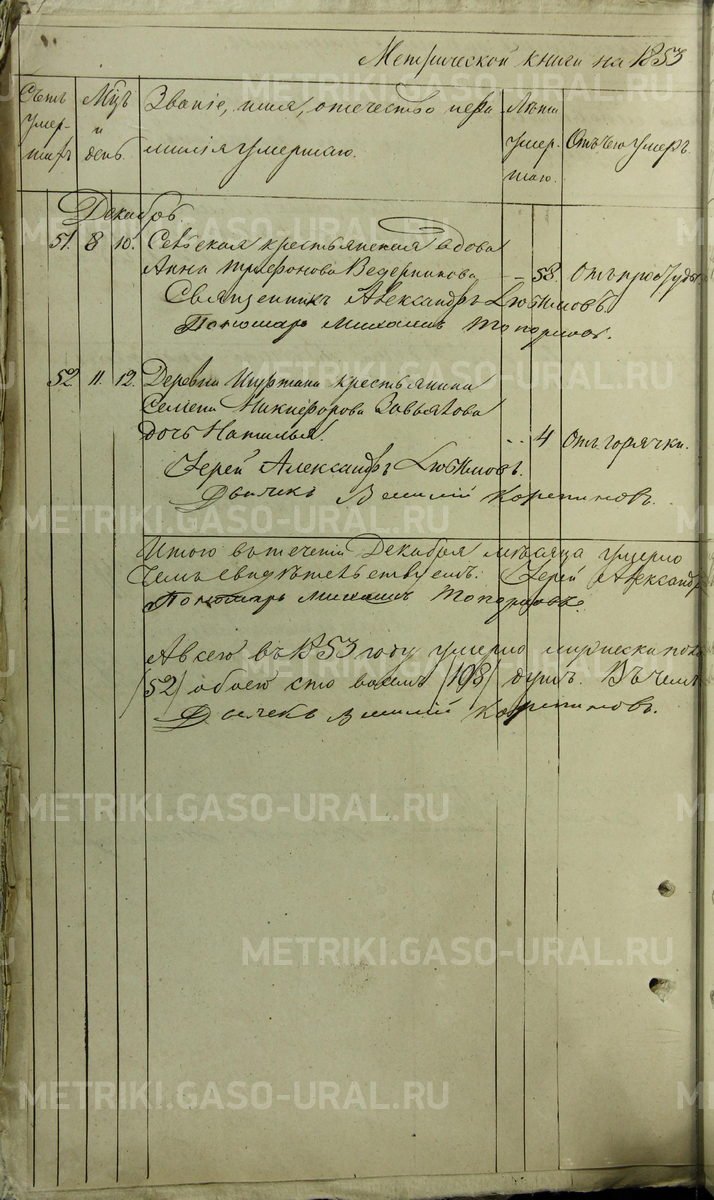 Метрической книги на 1853
Счетъ умер- шихъ
Мцъ и день.
Званіе, имя, отечество и фа-
милія умершаго.
Лѣта умер- шаго.
Отъ чего умеръ.
Декабрь.
51. 8 10. крестьянская вдова
Анна Трифонова Ведерникова 58. Отъ простуды
Священникъ Александръ Любимовъ.
Пономарь Михаилъ Топорковъ.
52. 11. 12. Деревни крестьянина
Семена Никифорова Завьялова
дочь Наталья. 4 Отъ горячки.
Іерей Александръ Любимовъ.
Дьячекъ Василій
Итого въ теченіи Декабря мѣсяца умерло
Чемъ свидѣтельствуемъ: Іерей Александръ
Пономарь Михаилъ Топорковъ.
А всего въ 1853 году умерло мужеска пола
/52/ обоего сто восемь /108/ душъ. Въ чемъ
Дьячекъ Василій
METRIKI.GASO-URAL.RU